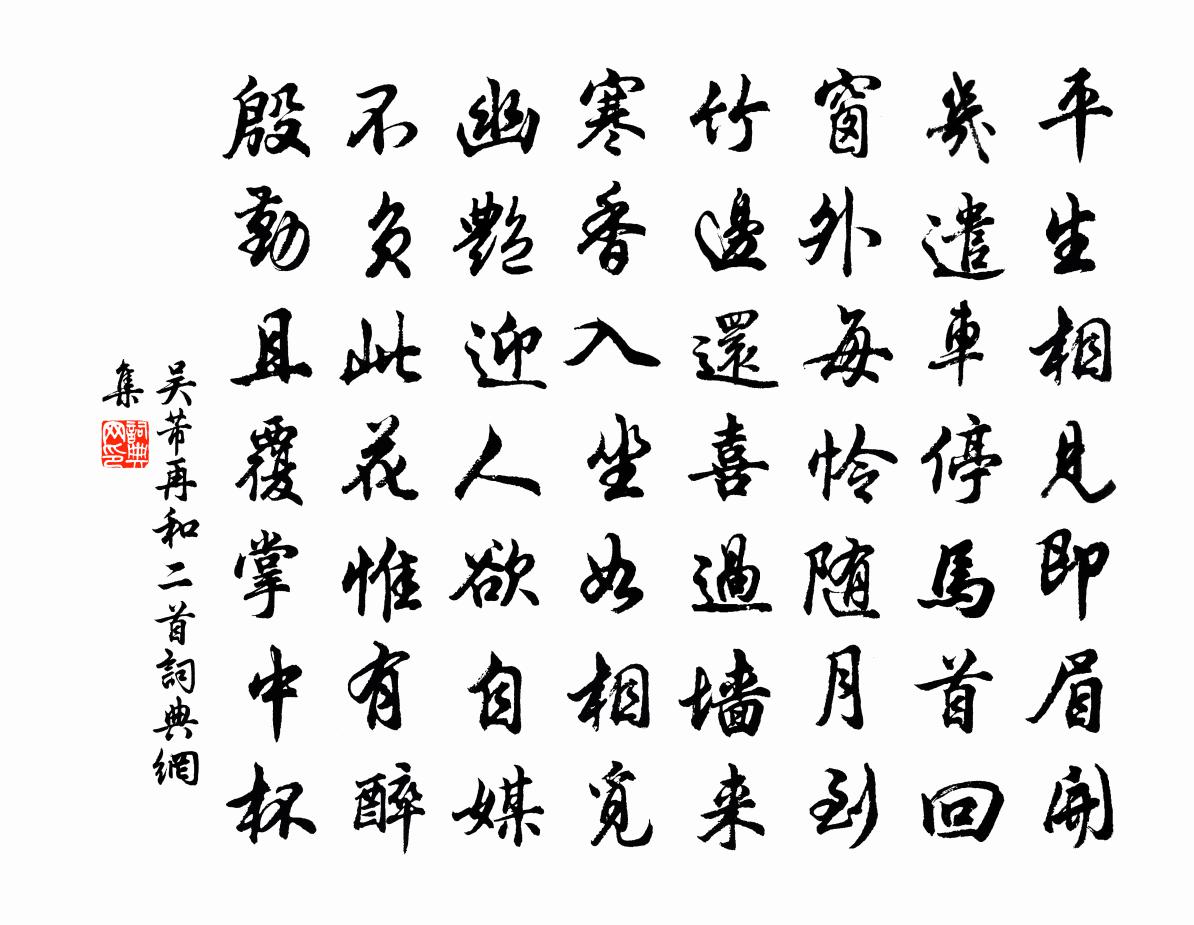 平生相見即眉開
幾遣車停馬首回
窗外每憐随月到
竹邊還喜過墻来
寒香入坐如相覓
幽艷迎人欲自媒
不負此花惟有醉
殷勤且覆掌中杯
吴芾再和二首詞典網
集
詞典網印